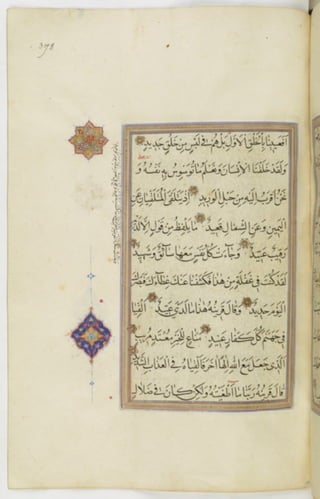 افعيينا بالخلق الاول بل هم في لبس من خلق جديد
ولقد خلقنا الانسان ونعلم ما توسوس به نفسه و
نحن اقرب اليه من حبل الوريد اذ يتلقى المتلقيان عن
اليمين وعن الشمال قعيد ما يلفظ من قول الا لديه
رقيب عتيد وجاءت كل نفس معها سائق وشهيد
لقد كنت في غفلة من هذا فكشفنا عنك غطاءك فبصرك
اليوم حديد وقال قرينه هذا ما لدي عتيد القيا
في جهنم كل كفار عنيد مناع للخير معتد مريب
الذي جعل مع الله الها اخر فالقياه في العذاب الشديد
قال قرينه ربنا ما اطغيته ولكن كان في ضلال